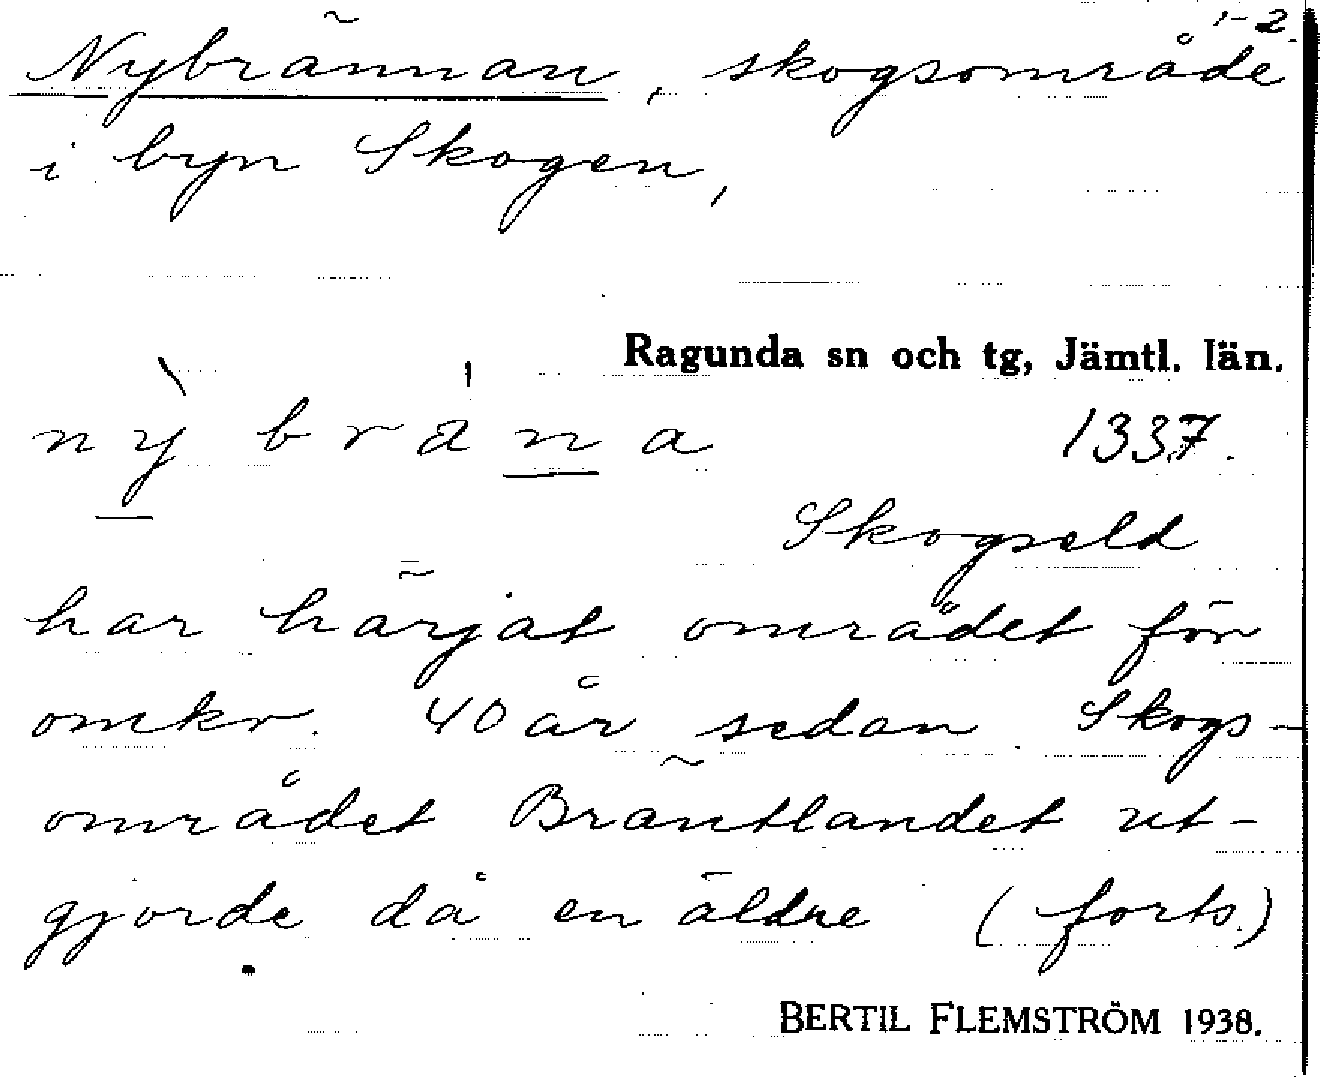 1-2.
Nybrännan, skogsområde
i byn Skogen,
Ragunda sn och tg, Jämtl. län.
nỳbrána
1337.
Skogseld
har härjat området för
omkr. 40 år sedan. Skogs-
området Bräntlandet ut-
gjorde då en äldre (forts.)
BERTIL FLEMSTRÖM 1938.